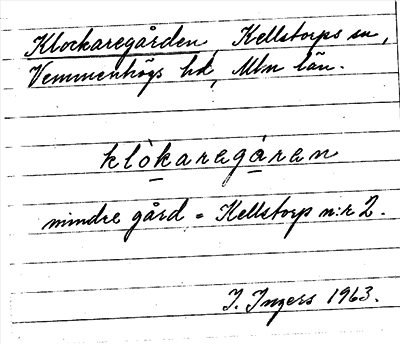 Klockaregården, Kellstorps sn,
Vemmenhögs hd, Mlm län.
klòkaregåren
mindre gård = Kellstorp n:r 2.
I. Ingers 1963.